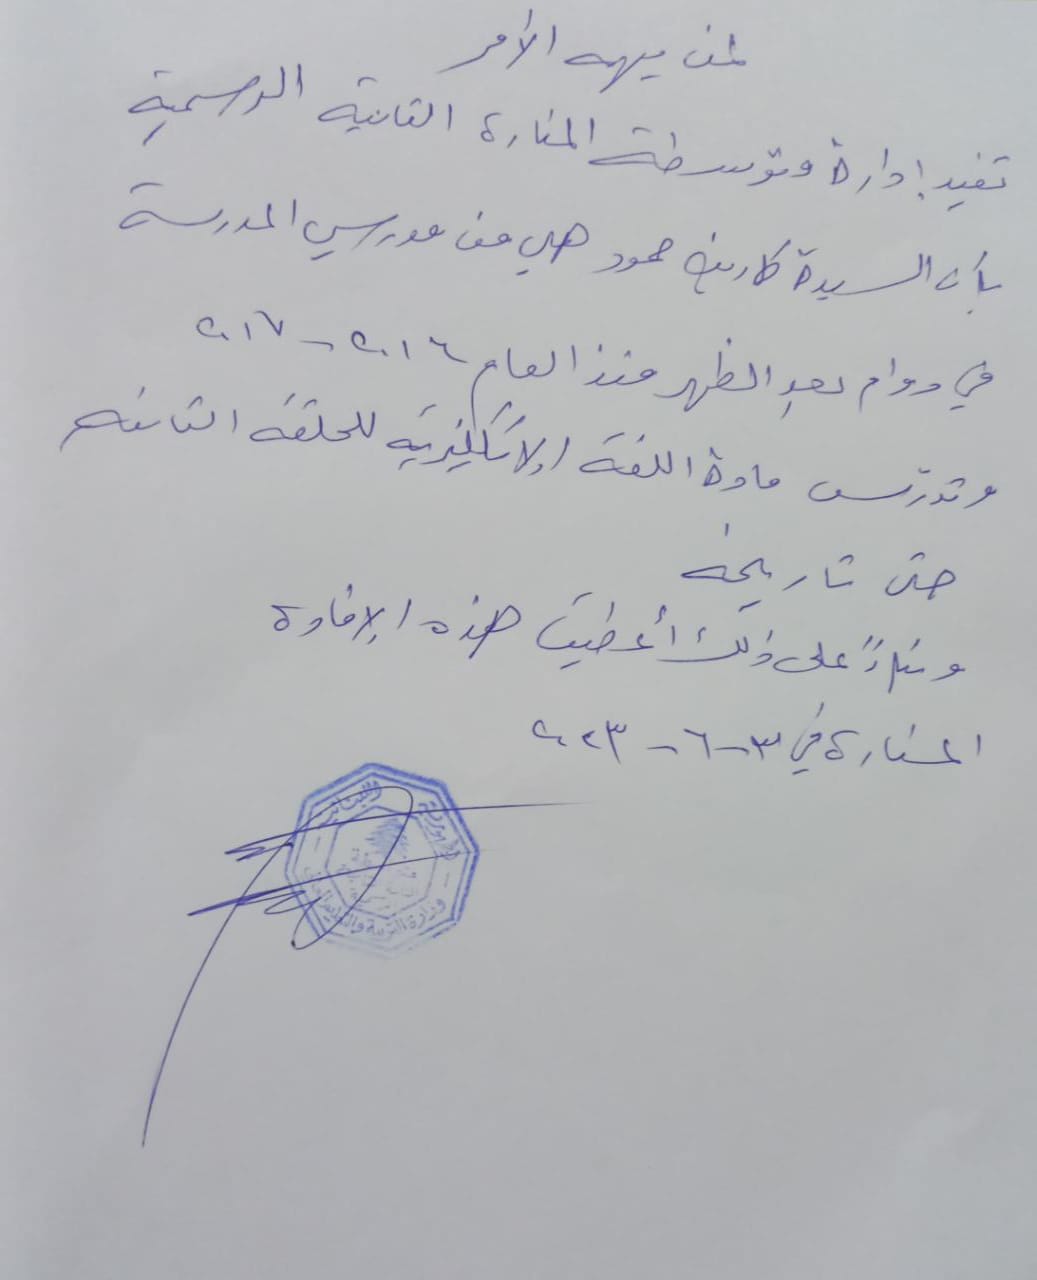 لمن يهمه الأمر
تفيد إدارة متوسطة المنارة الثانية الرسمية
بأن السيدة كارين حمود هي من مدرسي المدرسة
في دوام بعد الظهر منذ العام ٢٠١٦ - ٢٠١٧
وتدرّس مادة اللغة الإنكليزية للحلقة الثانية
حتى تاريخه
وبناءً على ذلك أعطيت هذه الإفادة
المنارة في ٣ - ٦ - ٢٠٢٣
الجمهورية اللبنانية
وزارة التربية والتعليم العالي